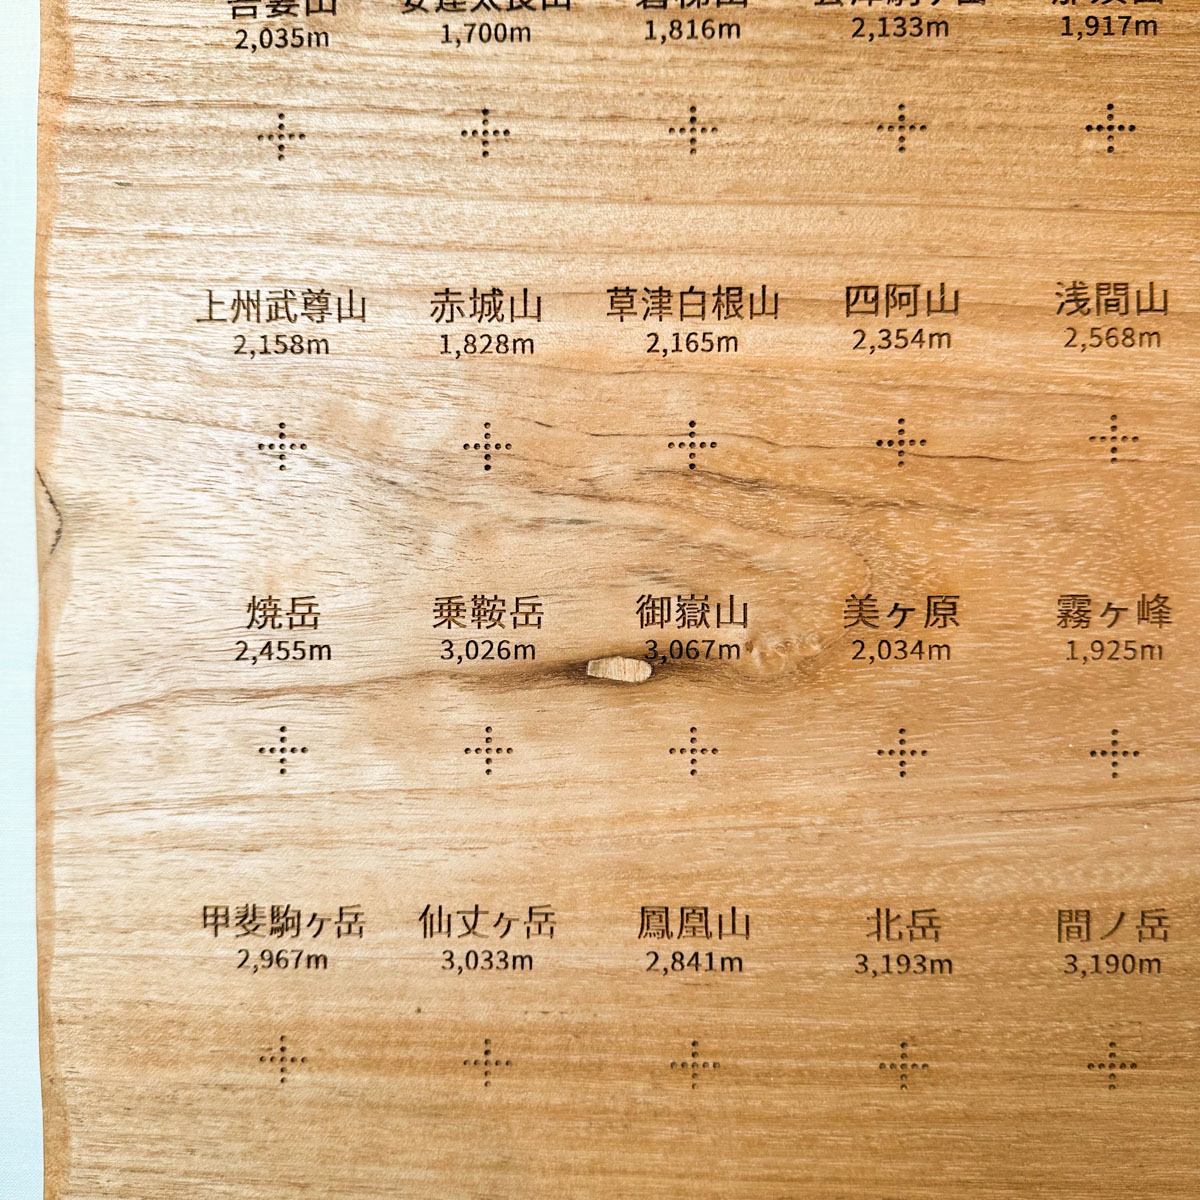 吾妻山 安達太良山 磐梯山 会津駒ヶ岳 那須山
2,035m 1,700m 1,816m 2,133m 1,917m
上州武尊山 赤城山 草津白根山 四阿山 浅間山
2,158m 1,828m 2,165m 2,354m 2,568m
焼岳 乗鞍岳 御嶽山 美ヶ原 霧ヶ峰
2,455m 3,026m 3,067m 2,034m 1,925m
甲斐駒ヶ岳 仙丈ヶ岳 鳳凰山 北岳 間ノ岳
2,967m 3,033m 2,841m 3,193m 3,190m